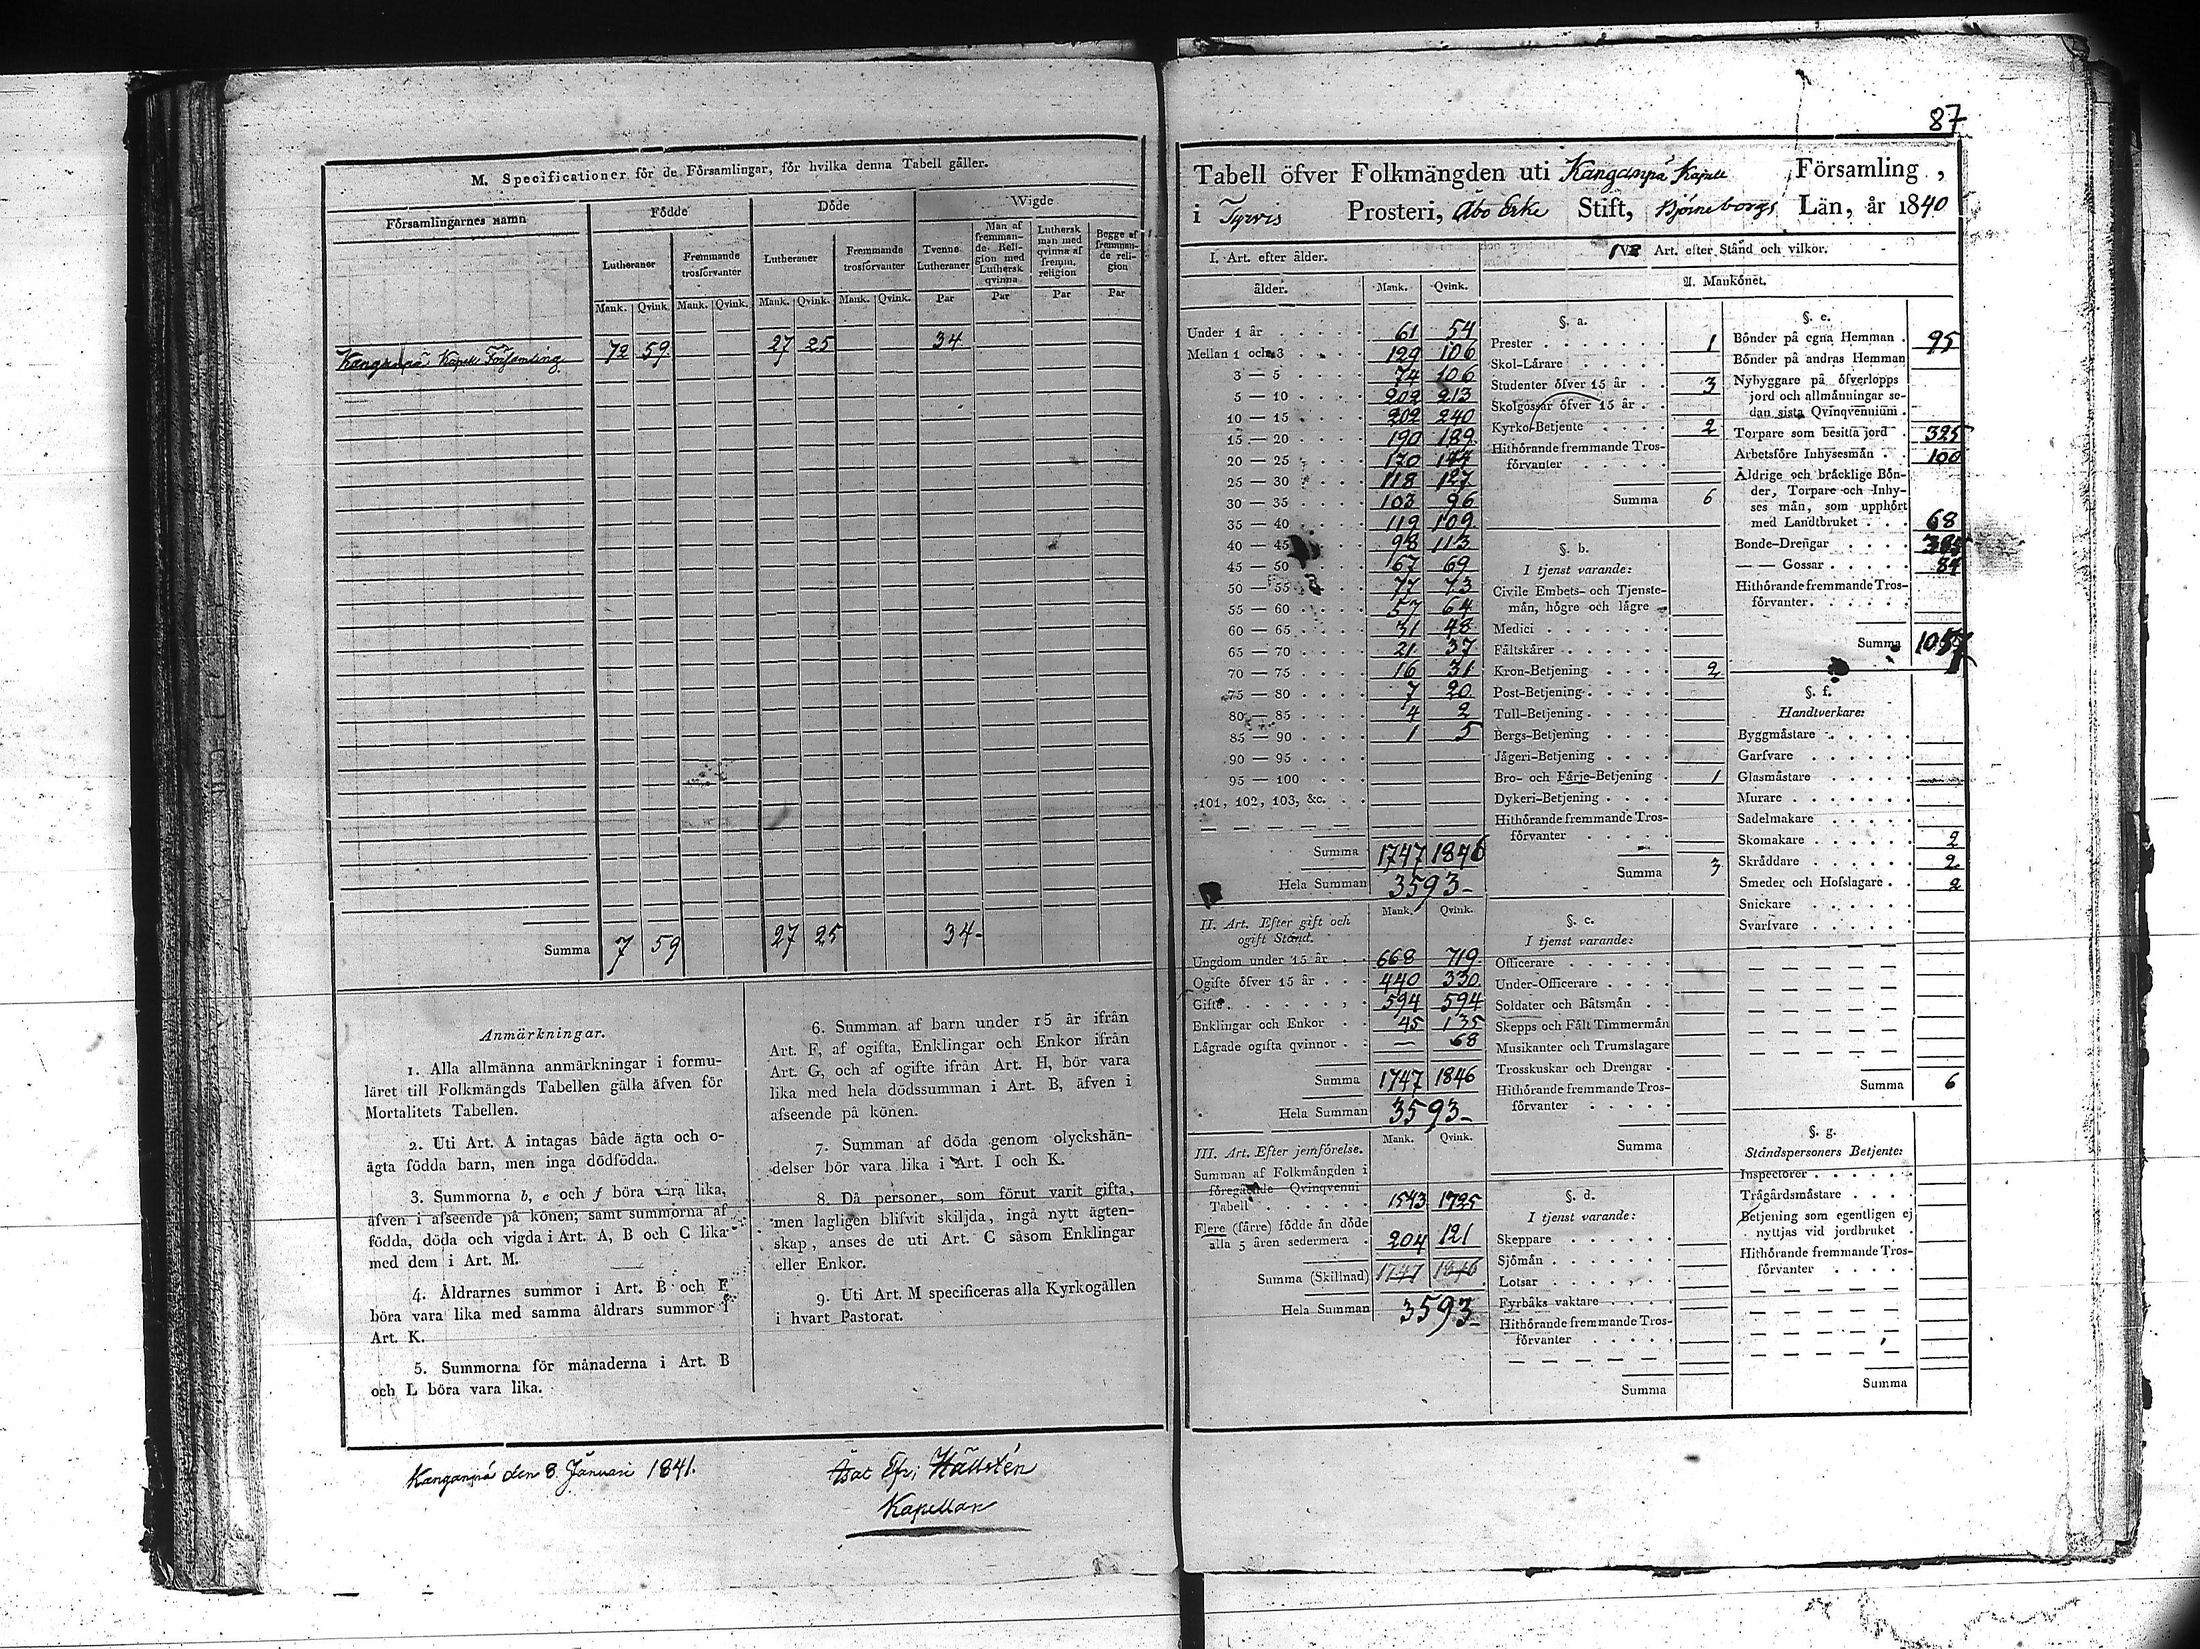 M. Specificationer för de Församlingar, för hvilka denna Tabell gäller.
Församlingarnes namn
Födde
Döde
Wigde
Lutheraner
Fremmande trosförvanter
Lutheraner
Fremmande trosförvanter
Tvenne Lutheraner
Man af fremmande Religion med Luthersk qvinna
Luthersk man med qvinna af fremm. religion
Begge af fremmande religion
Mank. Qvink. Mank. Qvink. Mank. Qvink. Mank. Qvink. Par Par Par Par
Kanganpä Kapell Församling 72 59 27 25 34
Summa 7 59 27 25 34-
Anmärkningar.
1. Alla allmänna anmärkningar i formu-
läret till Folkmängds Tabellen gälla äfven för
Mortalitets Tabellen.
2. Uti Art. A intagas både ägta och o-
ägta födda barn, men inga dödfödda.
3. Summorna b, e och f böra vara lika,
äfven i afseende på könen; samt summorna af
födda, döda och vigda i Art. A, B och C lika
med dem i Art. M.
4. Åldrarnes summor i Art. B och F
böra vara lika med samma åldrars summor i
Art. K.
5. Summorna för månaderna i Art. B
och L böra vara lika.
6. Summan af barn under 15 år ifrån
Art. F, af ogifta, Enklingar och Enkor ifrån
Art. G, och af ogifte ifrån Art. H, bör vara
lika med hela dödssumman i Art. B, äfven i
afseende på könen.
7. Summan af döda genom olyckshän-
delser bör vara lika i Art. I och K.
8. Då personer, som förut varit gifta,
men lagligen blifvit skiljda, ingå nytt ägten-
skap, anses de uti Art. C såsom Enklingar
eller Enkor.
9. Uti Art. M specificeras alla Kyrkogällen
i hvart Pastorat.
Kanganpä den 8 Januari 1841.
Hällstén
Kapellan
87
Tabell öfver Folkmängden uti Kanganpä Kapell Församling,
i Tyrvis Prosteri, Åbo Erke Stift, Björneborgs Län, år 1840
I. Art. efter ålder.
ålder. Mank. Qvink.
Under 1 år 61 54
Mellan 1 och 3 129 106
3 — 5 74 106
5 — 10 202 213
10 — 15 202 240
15 — 20 190 189
20 — 25 170 144
25 — 30 118 127
30 — 35 103 96
35 — 40 119 109
40 — 45 98 113
45 — 50 67 69
50 — 55 77 73
55 — 60 57 64
60 — 65 31 48
65 — 70 21 37
70 — 75 16 31
75 — 80 7 20
80 — 85 4 2
85 — 90 1 5
90 — 95
95 — 100
101, 102, 103, &c.
Summa 1747 1846
Hela Summan 3593-
II. Art. Efter gift och ogift Stånd. Mank. Qvink.
Ungdom under 15 år 668 719
Ogifte öfver 15 år 440 330
Gifte 594 594
Enklingar och Enkor 45 135
Lägrade ogifta qvinnor — 68
Summa 1747 1846
Hela Summan 3593-
III. Art. Efter jemförelse. Mank. Qvink.
Summan af Folkmängden i
föregående Qvinqvenni
Tabell 1543 1725
Flere (färre) födde än döde
alla 5 åren sedermera 204 121
Summa (Skillnad) 1747 1846
Hela Summan 3593-
IV Art. efter Stånd och vilkor.
A. Mankönet.
§. a.
Prester 1
Skol-Lärare
Studenter öfver 15 år 3
Skolgossar öfver 15 år
Kyrko-Betjente 2
Hithörande fremmande Tros-
förvanter
Summa 6
§. b.
I tjenst varande:
Civile Embets- och Tjenste-
män, högre och lägre
Medici
Fältskärer
Kron-Betjening 2
Post-Betjening
Tull-Betjening
Bergs-Betjening
Jägeri-Betjening
Bro- och Färje-Betjening 1
Dykeri-Betjening
Hithörande fremmande Tros-
förvanter
Summa 3
§. c.
I tjenst varande:
Officerare
Under-Officerare
Soldater och Båtsmän
Skepps och Fält Timmermän
Musikanter och Trumslagare
Trosskuskar och Drengar
Hithörande fremmande Tros-
förvanter
Summa
§. d.
I tjenst varande:
Skeppare
Sjömän
Lotsar
Fyrbåks vaktare
Hithörande fremmande Tros-
förvanter
Summa
§. e.
Bönder på egna Hemman 95
Bönder på andras Hemman
Nybyggare på öfverlopps
jord och allmänningar se-
dan sista Qvinqvennium
Torpare som besitta jord 325
Arbetsföre Inhysesmän 100
Åldrige och bräcklige Bön-
der, Torpare och Inhy-
ses män, som upphört
med Landtbruket 68
Bonde-Drengar 385
— — Gossar 84
Hithörande fremmande Tros-
förvanter
Summa 1057
§. f.
Handtverkare:
Byggmästare
Garfvare
Glasmästare
Murare
Sadelmakare
Skomakare 2
Skräddare 2
Smeder och Hofslagare 2
Snickare
Svarfvare
Summa 6
§. g.
Ståndspersoners Betjente:
Inspectorer
Trägårdsmästare
Betjening som egentligen ej
nyttjas vid jordbruket
Hithörande fremmande Tros-
förvanter
Summa